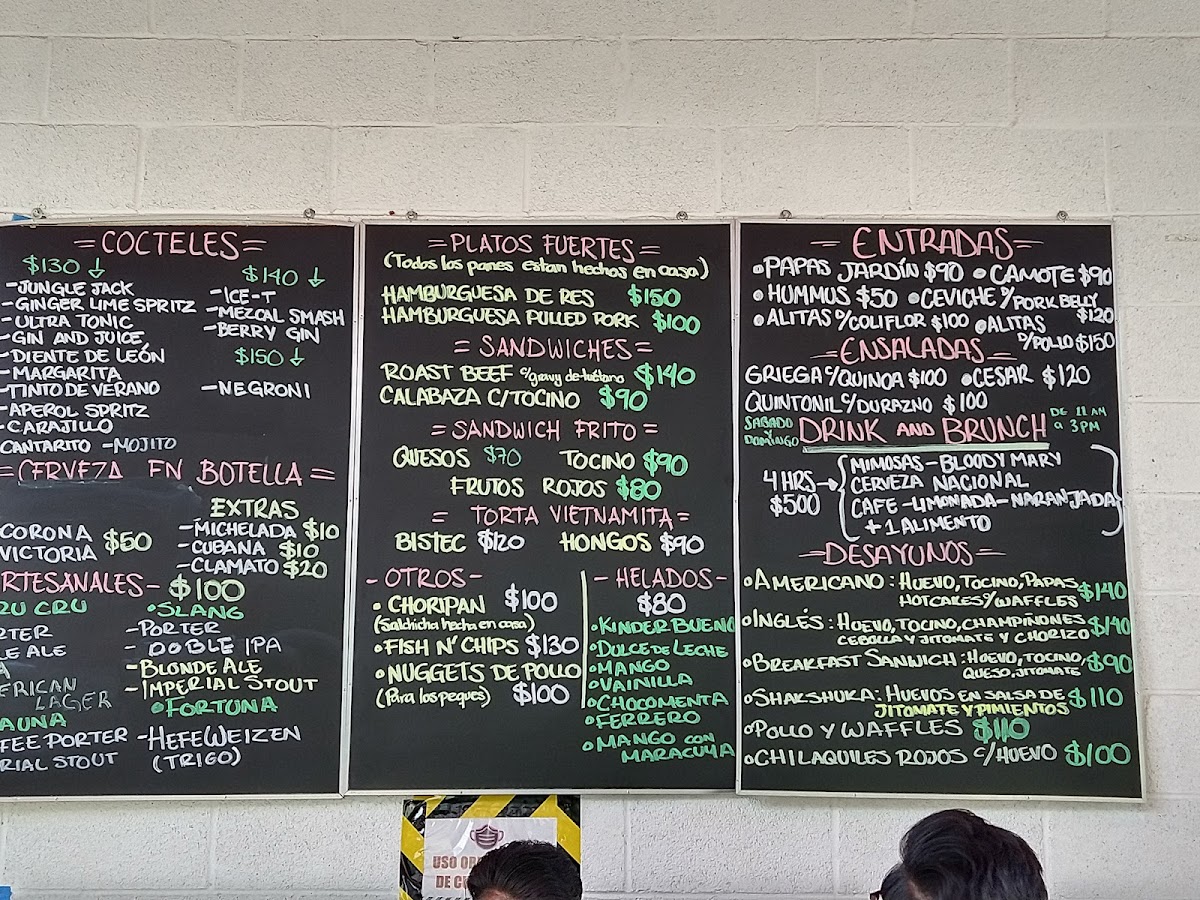 =COCTELES=
$130 ↓
-JUNGLE JACK
-GINGER LIME SPRITZ
-ULTRA TONIC
-GIN AND JUICE
-DIENTE DE LEÓN
-MARGARITA
-TINTO DE VERANO
-APEROL SPRITZ
-CARAJILLO
CANTARITO -MOJITO
$140 ↓
-ICE-T
-MEZCAL SMASH
-BERRY GIN
$150 ↓
-NEGRONI
=CERVEZA EN BOTELLA=
CORONA $50
VICTORIA
EXTRAS
-MICHELADA $10
-CUBANA $10
-CLAMATO $20
RTESANALES- $100
RU CRU
RTER
LE ALE
A
ERICAN
LAGER
AUNA
FEE PORTER
RIAL STOUT
•SLANG
-PORTER
- DOBLE IPA
-BLONDE ALE
-IMPERIAL STOUT
•FORTUNA
-HEFEWEIZEN
(TRIGO)
=PLATOS FUERTES=
(Todos los panes estan hechos en casa)
HAMBURGUESA DE RES $150
HAMBURGUESA PULLED PORK $100
=SANDWICHES=
ROAST BEEF c/gravy de tuétano $140
CALABAZA C/TOCINO $90
=SANDWICH FRITO=
QUESOS $70 TOCINO $90
FRUTOS ROJOS $80
= TORTA VIETNAMITA=
BISTEC $120 HONGOS $90
-OTROS-
• CHORIPAN $100
(Salchicha hecha en casa)
•FISH N' CHIPS $130
•NUGGETS DE POLLO
(Para los peques) $100
-HELADOS-
$80
•KINDER BUENO
•DULCE DE LECHE
•MANGO
•VAINILLA
•CHOCOMENTA
•FERRERO
•MANGO con
MARACUYA
=ENTRADAS=
•PAPAS JARDÍN $90 •CAMOTE $90
•HUMMUS $50 •CEVICHE c/PORK BELLY
$120
•ALITAS D/COLIFLOR $100 •ALITAS
D/POLLO $150
=ENSALADAS=
GRIEGA C/QUINOA $100 •CESAR $120
QUINTONIL C/DURAZNO $100
SABADO
Y
DOMINGO
DRINK AND BRUNCH
DE 11 AM
a 3 PM
4 HRS →
$500
MIMOSAS-BLOODY MARY
CERVEZA NACIONAL
CAFE-LIMONADA-NARANJADA
+ 1 ALIMENTO
=DESAYUNOS=
•AMERICANO: HUEVO, TOCINO, PAPAS
HOTCAKES O/WAFFLES $140
•INGLÉS: HUEVO, TOCINO, CHAMPIÑONES
CEBOLLA Y JITOMATE Y CHORIZO $140
•BREAKFAST SANWICH: HUEVO, TOCINO,
QUESO, JITOMATE $90
•SHAKSHUKA: HUEVOS EN SALSA DE
JITOMATE Y PIMIENTOS $110
•POLLO Y WAFFLES $110
•CHILAQUILES ROJOS C/HUEVO $100
USO
DE